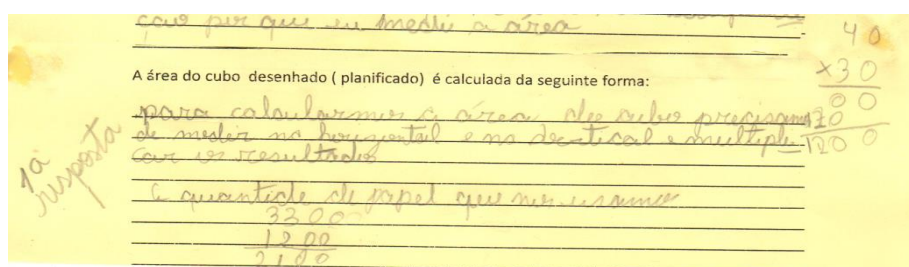 ção por que eu medi a área
A área do cubo desenhado ( planificado) é calculada da seguinte forma:
para calcularmos a área do cubo precisamos
de meder na horizontal e na vertical e multipli-
car os resultados
1ª
resposta
a quantide de papel que nos usamos
3300
1200
2100
40
×30
00
120
1200